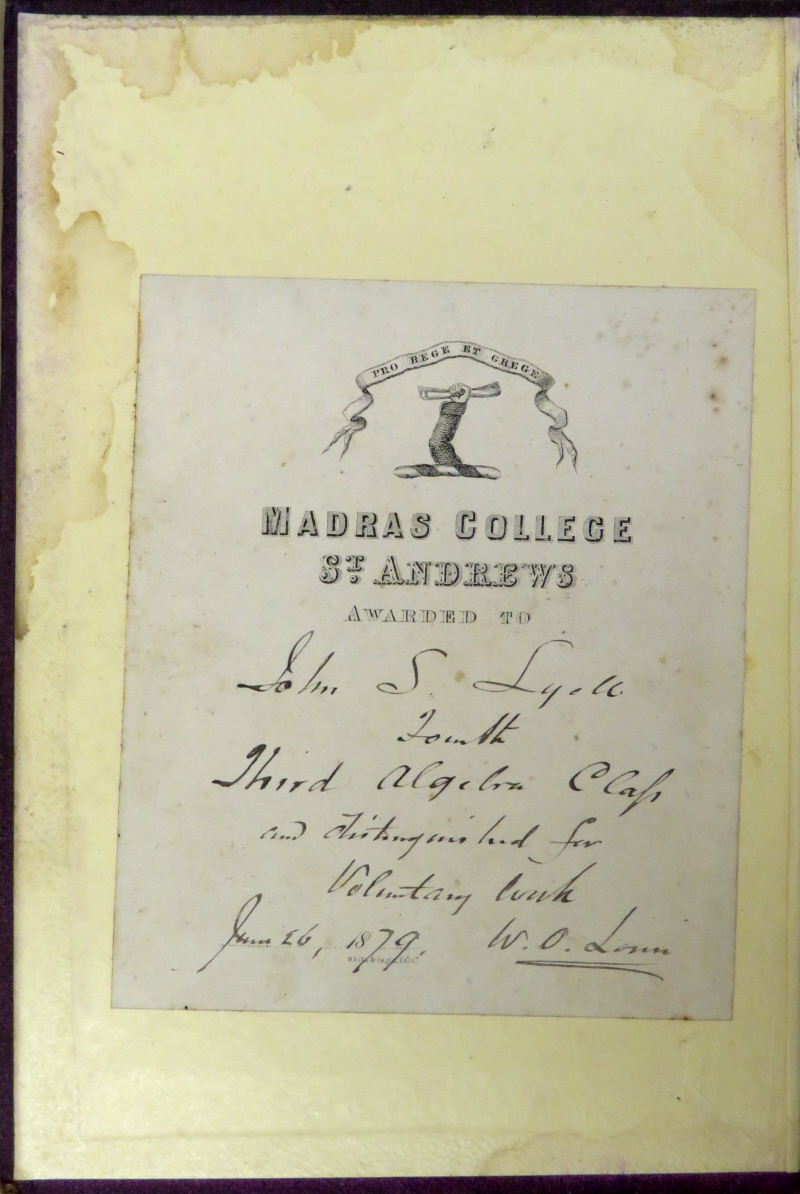 PRO REGE ET GREGE
MADRAS COLLEGE
ST. ANDREWS
AWARDED TO
John S. Lyell
Fourth
Third Algebra Class
and distinguished for
Voluntary Work
June 26, 1879. W. O.